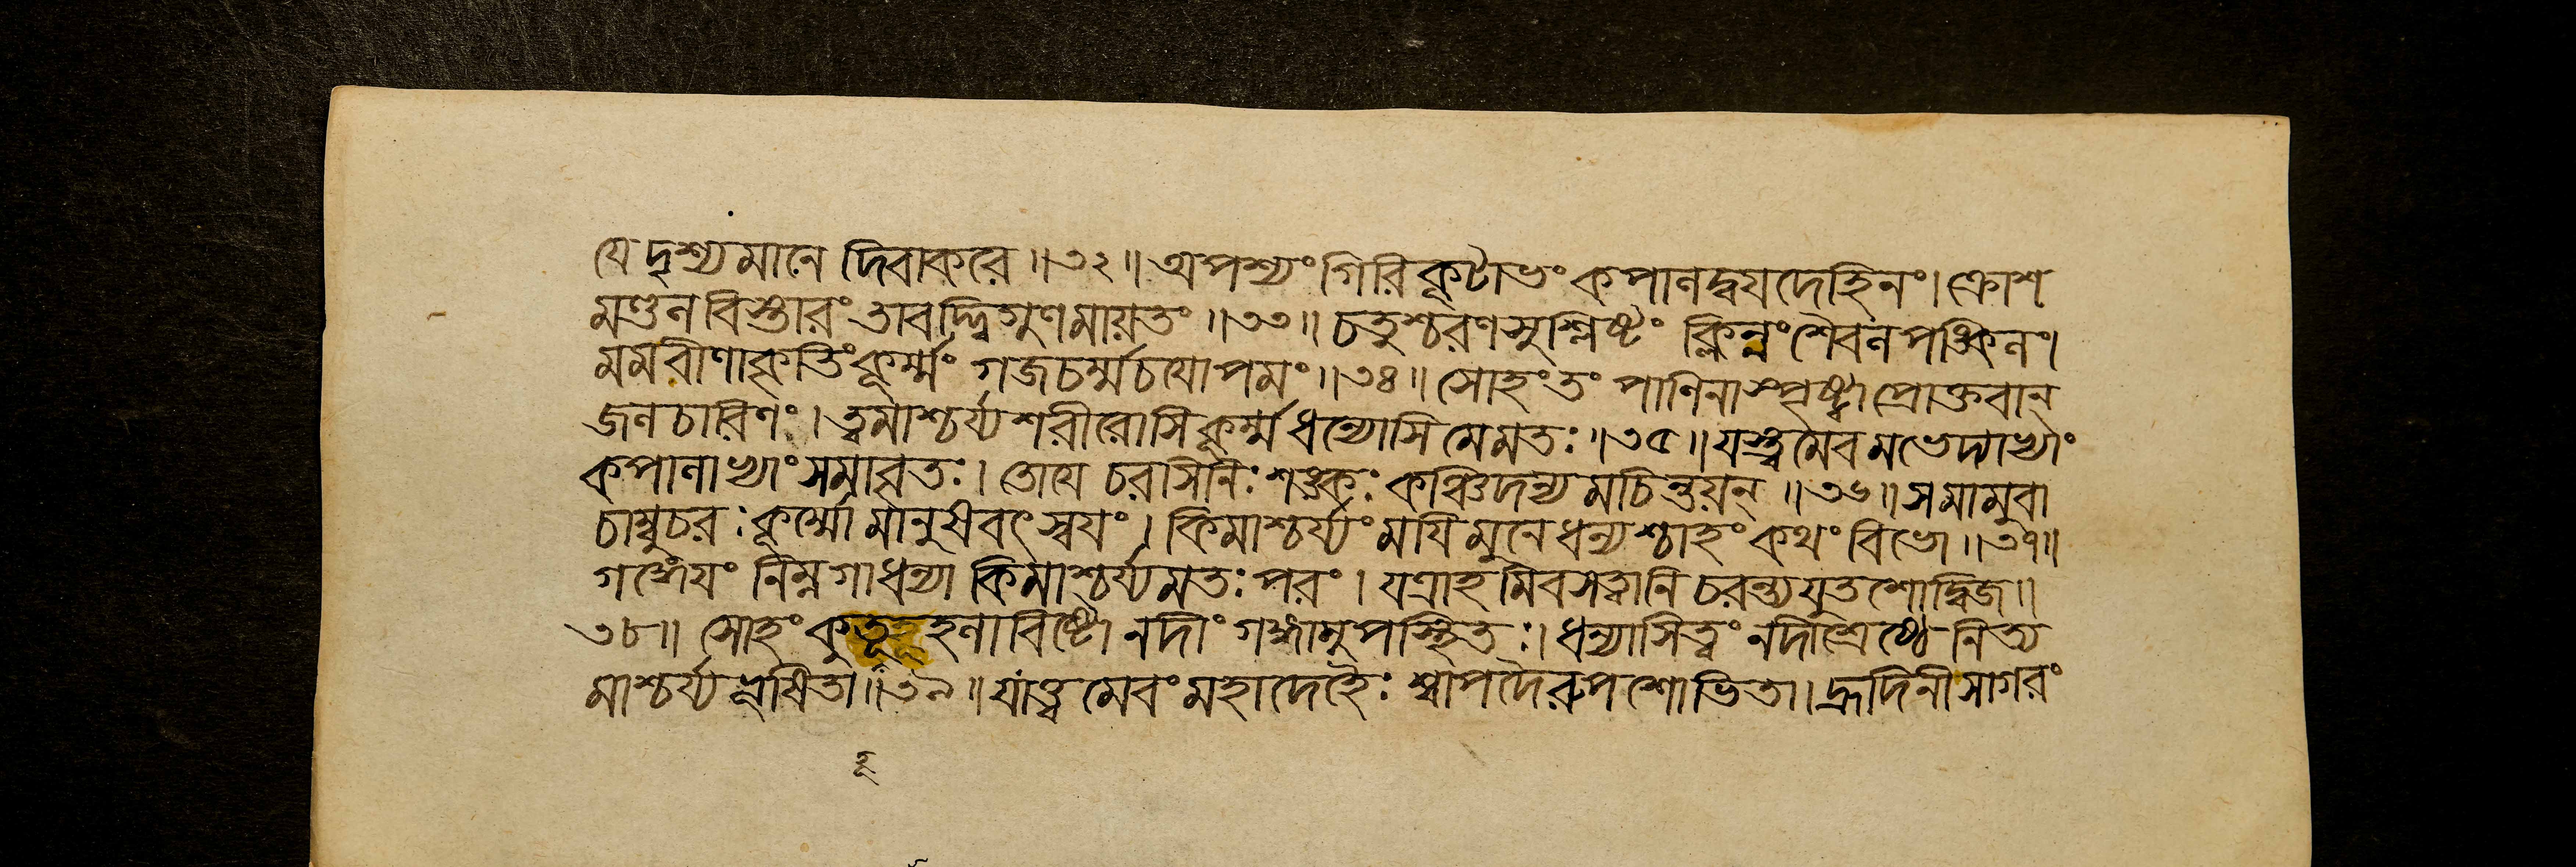 যে দৃশ্যমানে দিবাকরে ॥৩২॥ অপশ্যং গিরিকূটাভং কপালদ্বয়দেহিনং। ক্রোশ
মণ্ডলবিস্তারং তাবদ্দ্বিগুণমায়তং ॥৩৩॥ চতুশ্চরণসুশ্লিষ্টং ক্লিন্নং শৈবলপঙ্কিলং।
মমবীণাকৃতিং কূর্ম্মং গজচর্ম্মচয়োপমং ॥৩৪॥ সোহং তং পাণিনা স্পৃষ্ট্বা প্রোক্তবান্
জলচারিণং। ত্বমাশ্চর্য্যশরীরোসি কূর্ম্ম ধন্যোসি মে মতঃ ॥৩৫॥ যস্ত্বমেবমভেদ্যাভ্যাং
কপালাভ্যাং সমাবৃতঃ। তোয়ে চরসি নিঃশঙ্কঃ কঞ্চিদন্যমচিন্তয়ন্ ॥৩৬॥ স মামুবা
চাম্বুচরঃ কূর্ম্মো মানুষবৎ স্বয়ং। কিমাশ্চর্য্যং ময়ি মুনে ধন্যশ্চাহং কথং বিভো ॥৩৭॥
গঙ্গেয়ং নিম্নগা ধন্যা কিমাশ্চর্য্যমতঃ পরং। যত্রাহমিব সত্বানি চরন্ত্যযুতশো দ্বিজ॥
৩৮॥ সোহং কুতূহলাবিষ্টো নদীং গঙ্গামুপস্থিতঃ। ধন্যাসি ত্বং নদীশ্রেষ্ঠে নিত্য
মাশ্চর্য্যভূষিতা ॥৩৯॥ যা ত্বমেবং মহাদেহৈঃ শ্বাপদৈরুপশোভিতা। হ্রদিনী সাগরং
হূ